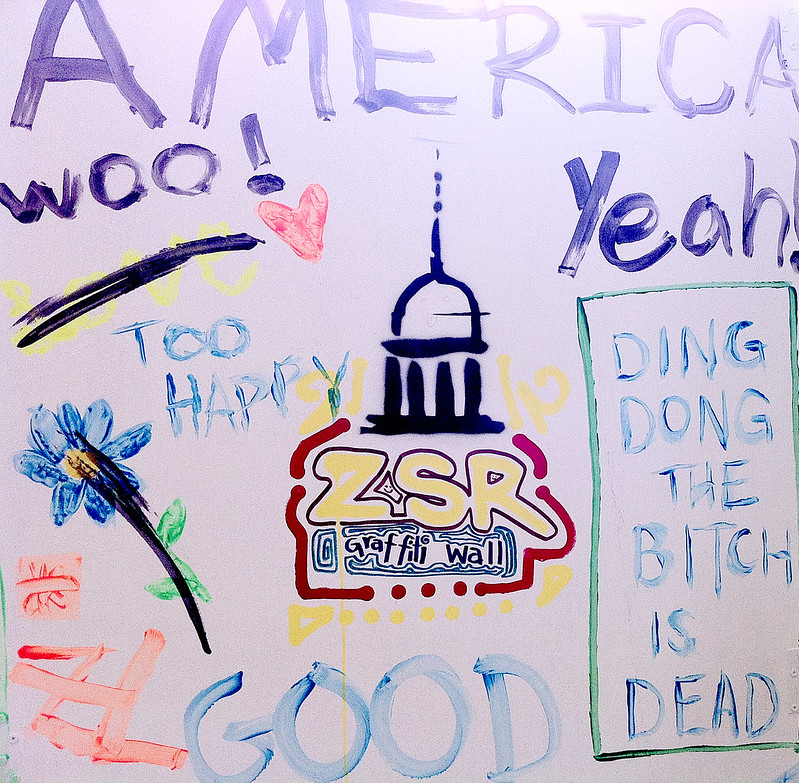 AMERICA
woo!
Yeah!
TOO
HAPPY
ZSR
Graffiti Wall
DING
DONG
THE
BITCH
IS
DEAD
GOOD